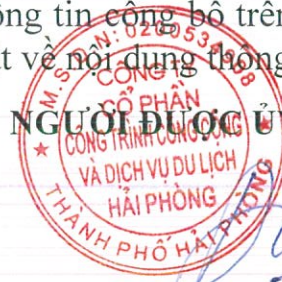 ông tin công bố trên
ật về nội dung thông
NGƯỜI ĐƯỢC ỦY
M.S.D.N: 0200534008
CÔNG TY
CỔ PHẦN
CÔNG TRÌNH CÔNG CỘNG
VÀ DỊCH VỤ DU LỊCH
HẢI PHÒNG
THÀNH PHỐ HẢI PHÒNG